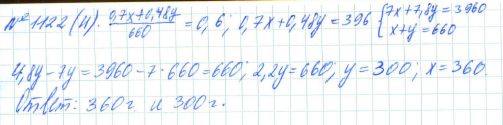 № 1122 (н). (0,7x+0,48y)/660 = 0,6; 0,7x+0,48y=396 {7x+7,8y=3960 x+y=660
4,8y-7y=3960-7·660=660; 2,2y=660; y=300; x=360.
Ответ: 360г. и 300г.